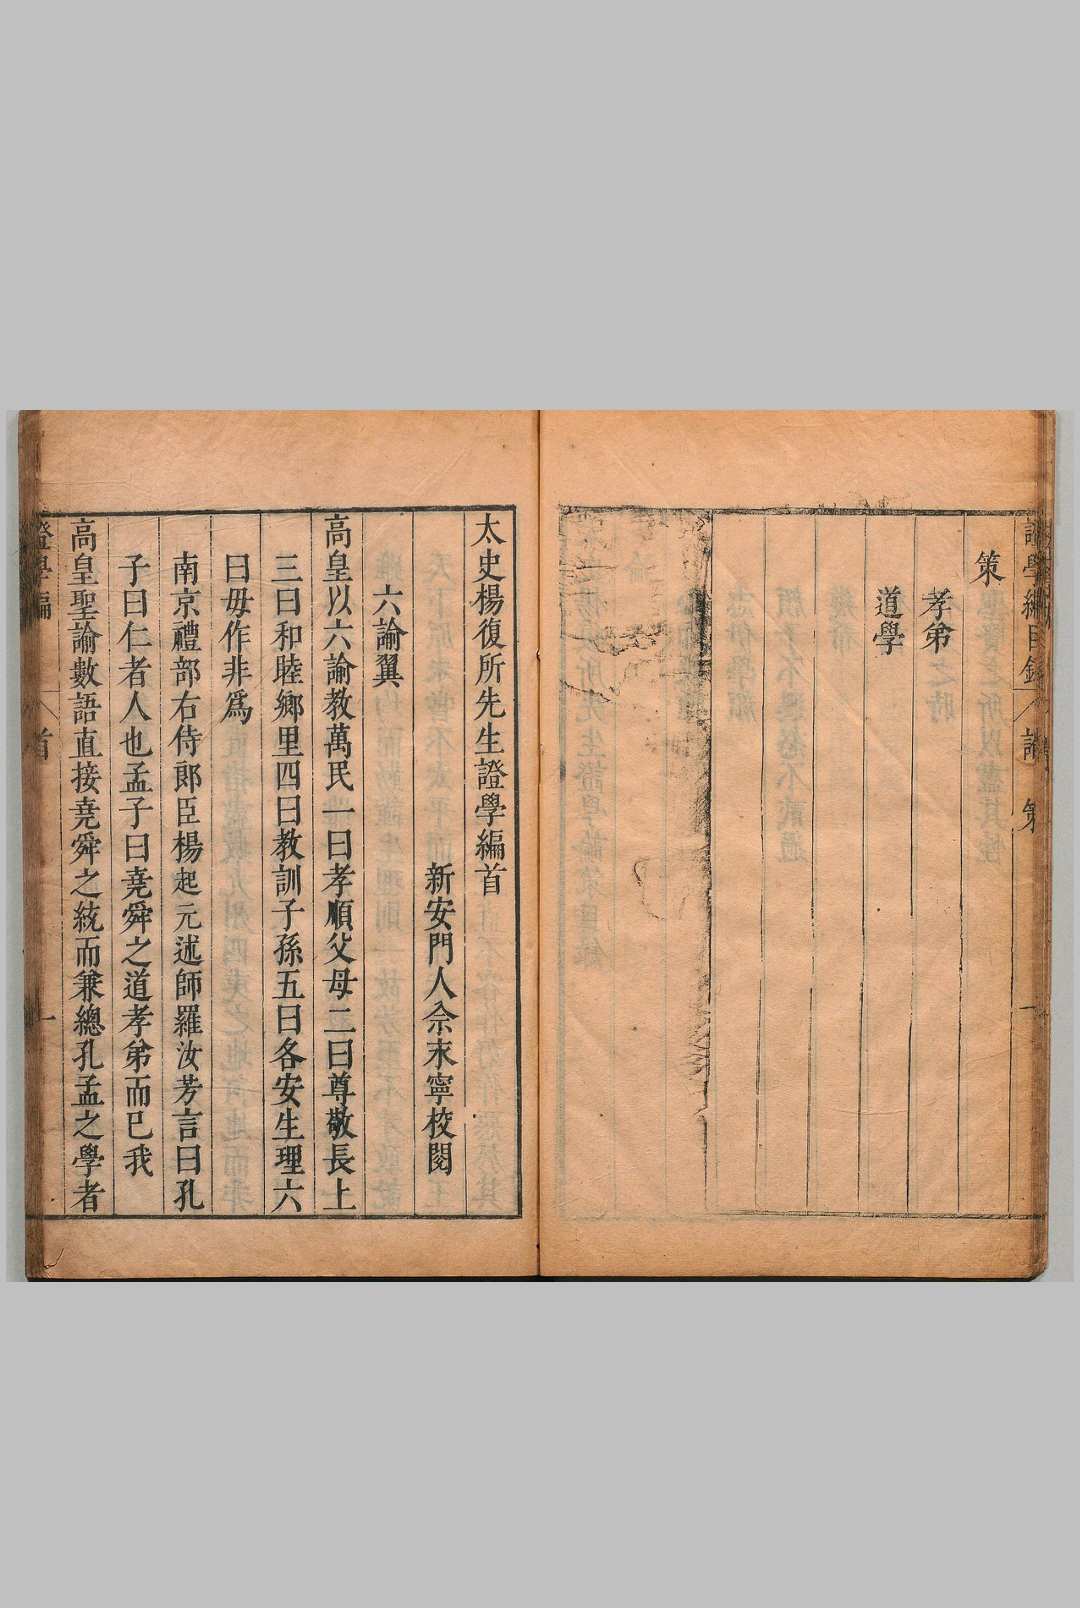 策
孝弟
道學
太史楊復所先生證學編首
新安門人佘永寧校閱
六諭翼
高皇以六諭教萬民一曰孝順父母二曰尊敬長上
三曰和睦鄉里四曰教訓子孫五曰各安生理六
曰毋作非爲
南京禮部右侍郎臣楊起元述師羅汝芳言曰孔
子曰仁者人也孟子曰堯舜之道孝弟而已我
高皇聖諭數語直接堯舜之統而兼總孔孟之學者
證學編 首 一